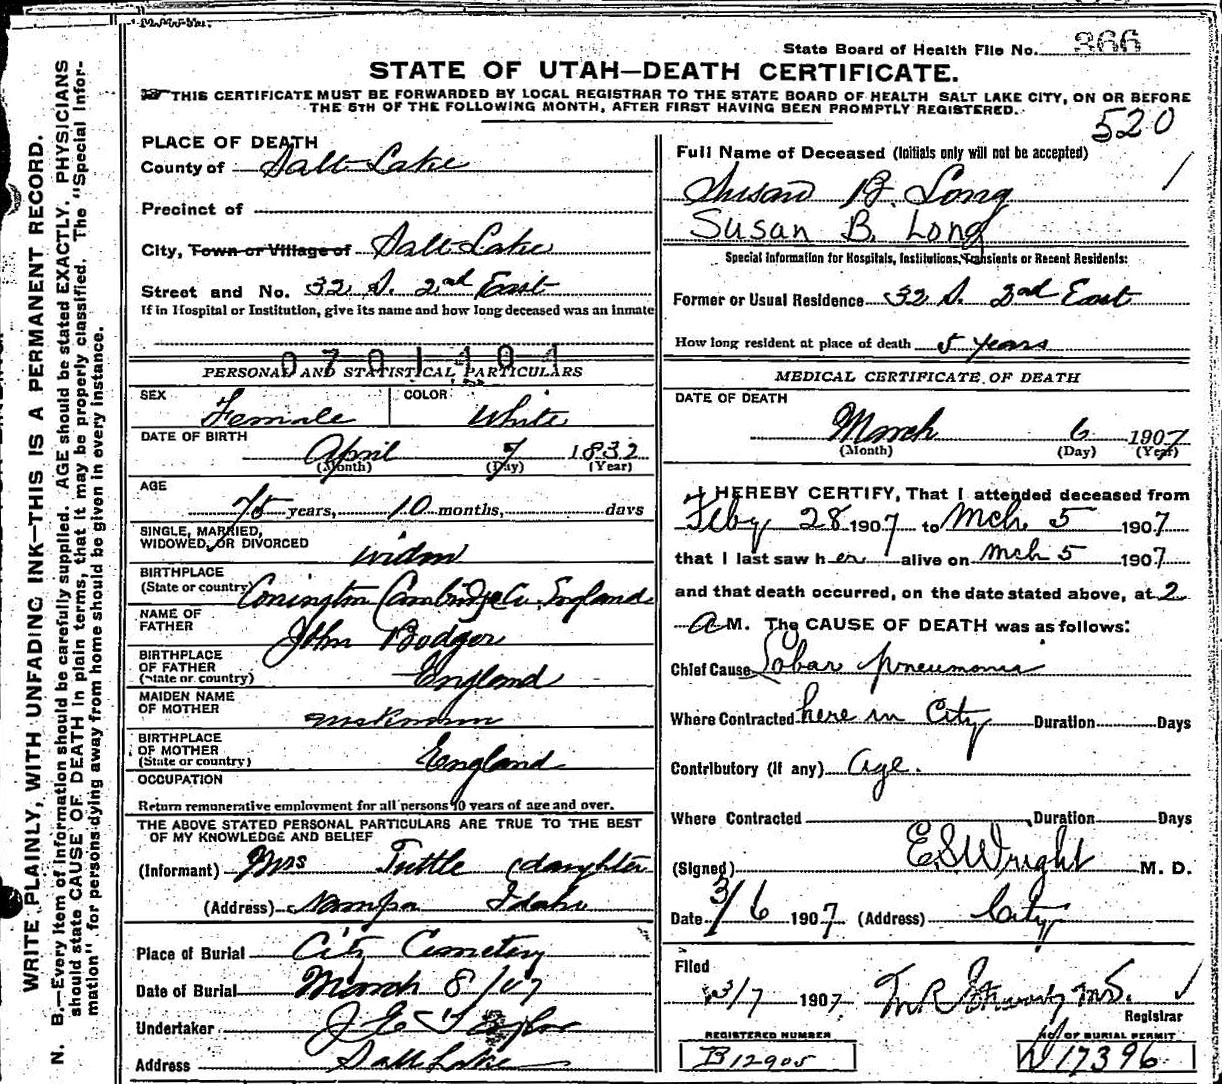 State Board of Health File No. 366
STATE OF UTAH—DEATH CERTIFICATE.
THIS CERTIFICATE MUST BE FORWARDED BY LOCAL REGISTRAR TO THE STATE BOARD OF HEALTH SALT LAKE CITY, ON OR BEFORE
THE 5TH OF THE FOLLOWING MONTH, AFTER FIRST HAVING BEEN PROMPTLY REGISTERED.
520
WRITE PLAINLY, WITH UNFADING INK—THIS IS A PERMANENT RECORD.
N. B.—Every item of information should be carefully supplied. AGE should be stated EXACTLY. PHYSICIANS
should state CAUSE OF DEATH in plain terms, that it may be properly classified. The "Special Infor-
mation" for persons dying away from home should be given in every instance.
PLACE OF DEATH
County of Salt Lake
Precinct of
City, Town or Village of Salt Lake
Street and No. 32 S. 2nd East
If in Hospital or Institution, give its name and how long deceased was an inmate
0701404
PERSONAL AND STATISTICAL PARTICULARS
SEX Female COLOR White
DATE OF BIRTH April 7 1832
(Month) (Day) (Year)
AGE
75 years, 10 months, days
SINGLE, MARRIED,
WIDOWED, OR DIVORCED widow
BIRTHPLACE
(State or country) Conington Cambridge Co. England
NAME OF
FATHER John Bodger
BIRTHPLACE
OF FATHER
(State or country) England
MAIDEN NAME
OF MOTHER
BIRTHPLACE
OF MOTHER
(State or country) England
OCCUPATION
Return remunerative employment for all persons 10 years of age and over.
THE ABOVE STATED PERSONAL PARTICULARS ARE TRUE TO THE BEST
OF MY KNOWLEDGE AND BELIEF
(Informant) Mrs Tuttle (daughter
(Address) Nampa Idaho
Place of Burial City Cemetery
Date of Burial March 8/07
Undertaker J E Taylor
Address Salt Lake
Full Name of Deceased (Initials only will not be accepted)
Susan B. Long
Susan B. Long
Special Information for Hospitals, Institutions, Transients or Recent Residents:
Former or Usual Residence 32 S. 2nd East
How long resident at place of death 5 years
MEDICAL CERTIFICATE OF DEATH
DATE OF DEATH
March 6 1907
(Month) (Day) (Year)
I HEREBY CERTIFY, That I attended deceased from
Feby 28 1907 to Mch 5 1907
that I last saw her alive on Mch 5 1907
and that death occurred, on the date stated above, at 2
A M. The CAUSE OF DEATH was as follows:
Chief Cause Lobar pneumonia
Where Contracted here in City Duration Days
Contributory (if any) Age.
Where Contracted Duration Days
(Signed) E S Wright M. D.
Date 3/6 1907 (Address) City
Filed
3/7 1907 M.D.
Registrar
REGISTERED NUMBER
B12905
NO. OF BURIAL PERMIT
17396